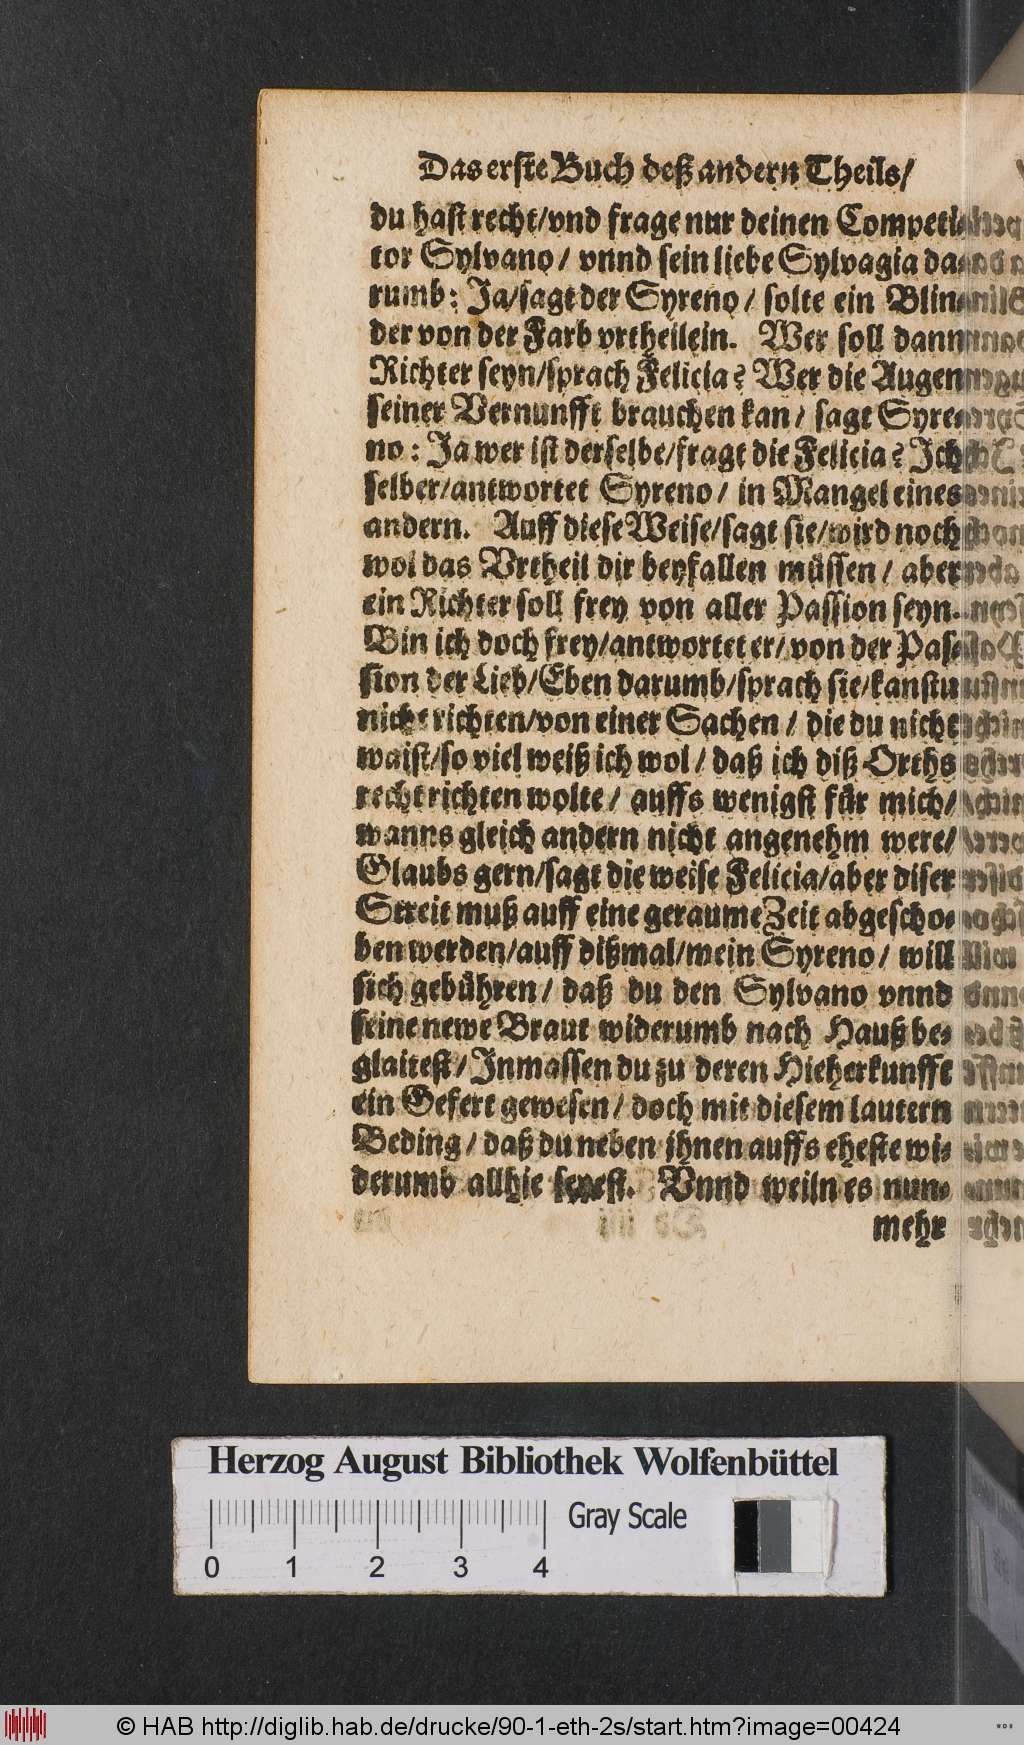 Das erste Buch deß andern Theils/
du hast recht/vnd frage nur deinen Competi-
tor Sylvano/ vnnd sein liebe Sylvagia da-
rumb: Ja/sagt der Syreno/ solte ein Blin-
der von der Farb vrtheilein. Wer soll dann
Richter seyn/sprach Felicia? Wer die Augen
seiner Vernunfft brauchen kan/ sagt Syre-
no: Ja wer ist derselbe/fragt die Felicia? Ich
selber/antwortet Syreno/ in Mangel eines
andern. Auff diese Weise/sagt sie/wird noch
wol das Vrtheil dir beyfallen müssen/ aber
ein Richter soll frey von aller Passion seyn.
Bin ich doch frey/antwortet er/von der Pas-
sion der Lieb/Eben darumb/sprach sie/kanstu
nicht richten/von einer Sachen/ die du nicht
waist/so viel weiß ich wol/ daß ich diß Orths
recht richten wolte/ auffs wenigst für mich/
wanns gleich andern nicht angenehm were/
Glaubs gern/sagt die weise Felicia/aber diser
Streit muß auff eine geraume Zeit abgescho-
ben werden/auff dißmal/mein Syreno/ will
sich gebühren/ daß du den Sylvano vnnd
seine newe Braut widerumb nach Hauß be-
glaitest/Inmassen du zu deren Hieherkunfft
ein Gefert gewesen/ doch mit diesem lautern
Beding/ daß du neben ihnen auffs eheste wi-
derumb allhie seyest. Vnnd weiln es nun-
mehr
Herzog August Bibliothek Wolfenbüttel
Gray Scale
0 1 2 3 4
© HAB http://diglib.hab.de/drucke/90-1-eth-2s/start.htm?image=00424